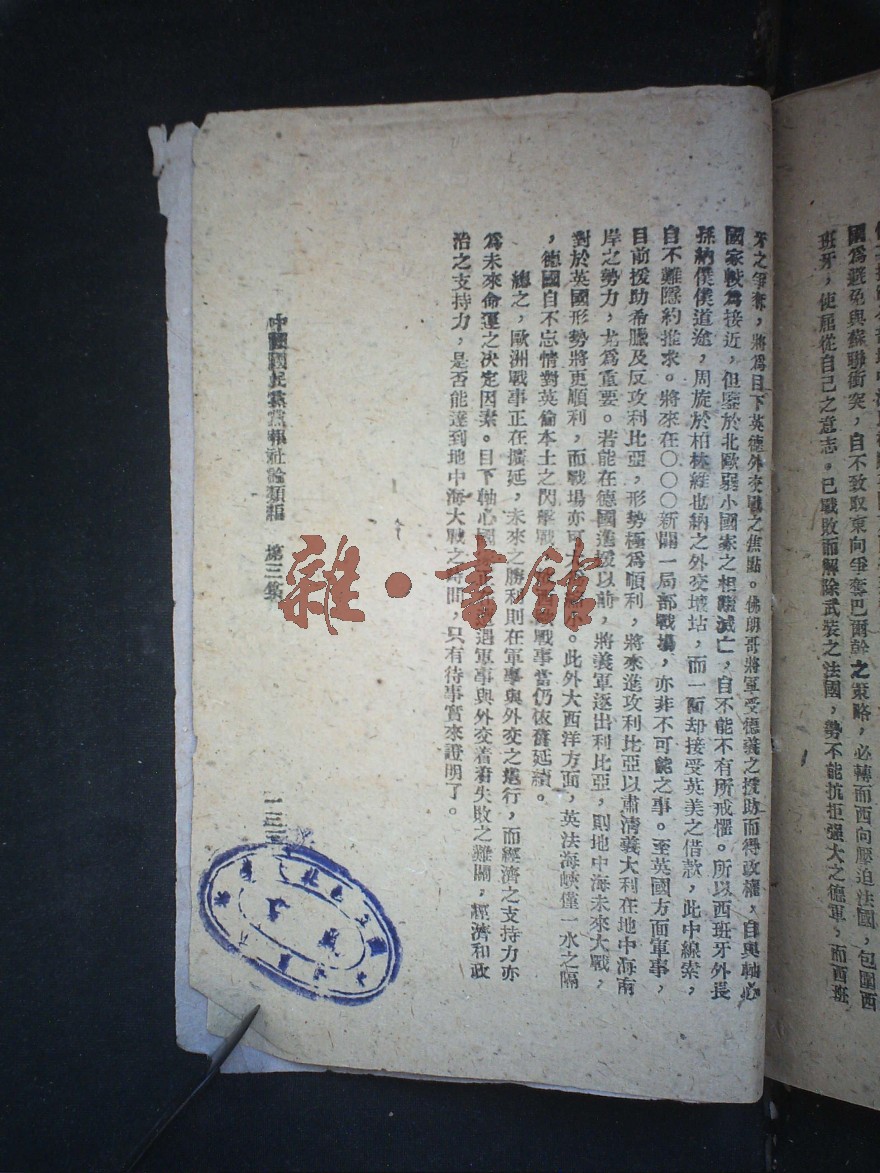 國爲避免與蘇聯衝突，自不致取東向爭奪巴爾幹之策略，必轉而西向壓迫法國，包圍西
班牙，使屈從自己之意志。已戰敗而解除武裝之法國，勢不能抗拒强大之德軍，而西班
牙之爭奪，將爲目下英德外交戰之焦點。佛朗哥將軍受德義之援助而得政權，自與軸心
國家較爲接近，但鑒於北歐弱小國家之相繼滅亡，自不能不有所戒懼。所以西班牙外長
孫納僕僕道途，周旋於柏林維也納之外交壇坫，而一面却接受英美之借款，此中線索，
自不難隱約推求。將來在〇〇〇新開一局部戰場，亦非不可能之事。至英國方面軍事，
目前援助希臘及反攻利比亞，形勢極爲順利，將來進攻利比亞以肅清義大利在地中海南
岸之勢力，尤爲重要。若能在德國進援以前，將義軍逐出利比亞，則地中海未來大戰，
對於英國形勢將更順利，而戰場亦可大。此外大西洋方面，英法海峽僅一水之隔
，德國自不忘情對英倫本土之閃擊戰，戰事當仍依舊延續。
總之，歐洲戰事正在擴延，未來之勝利則在軍事與外交之進行，而經濟之支持力亦
爲未來命運之决定因素。目下軸心國正遇軍事與外交着着失敗之難關，經濟和政
治之支持力，是否能達到地中海大戰之時間，只有待事實來證明了。
中國國民黨黨報社論類編　第三集
一三
雜·書館